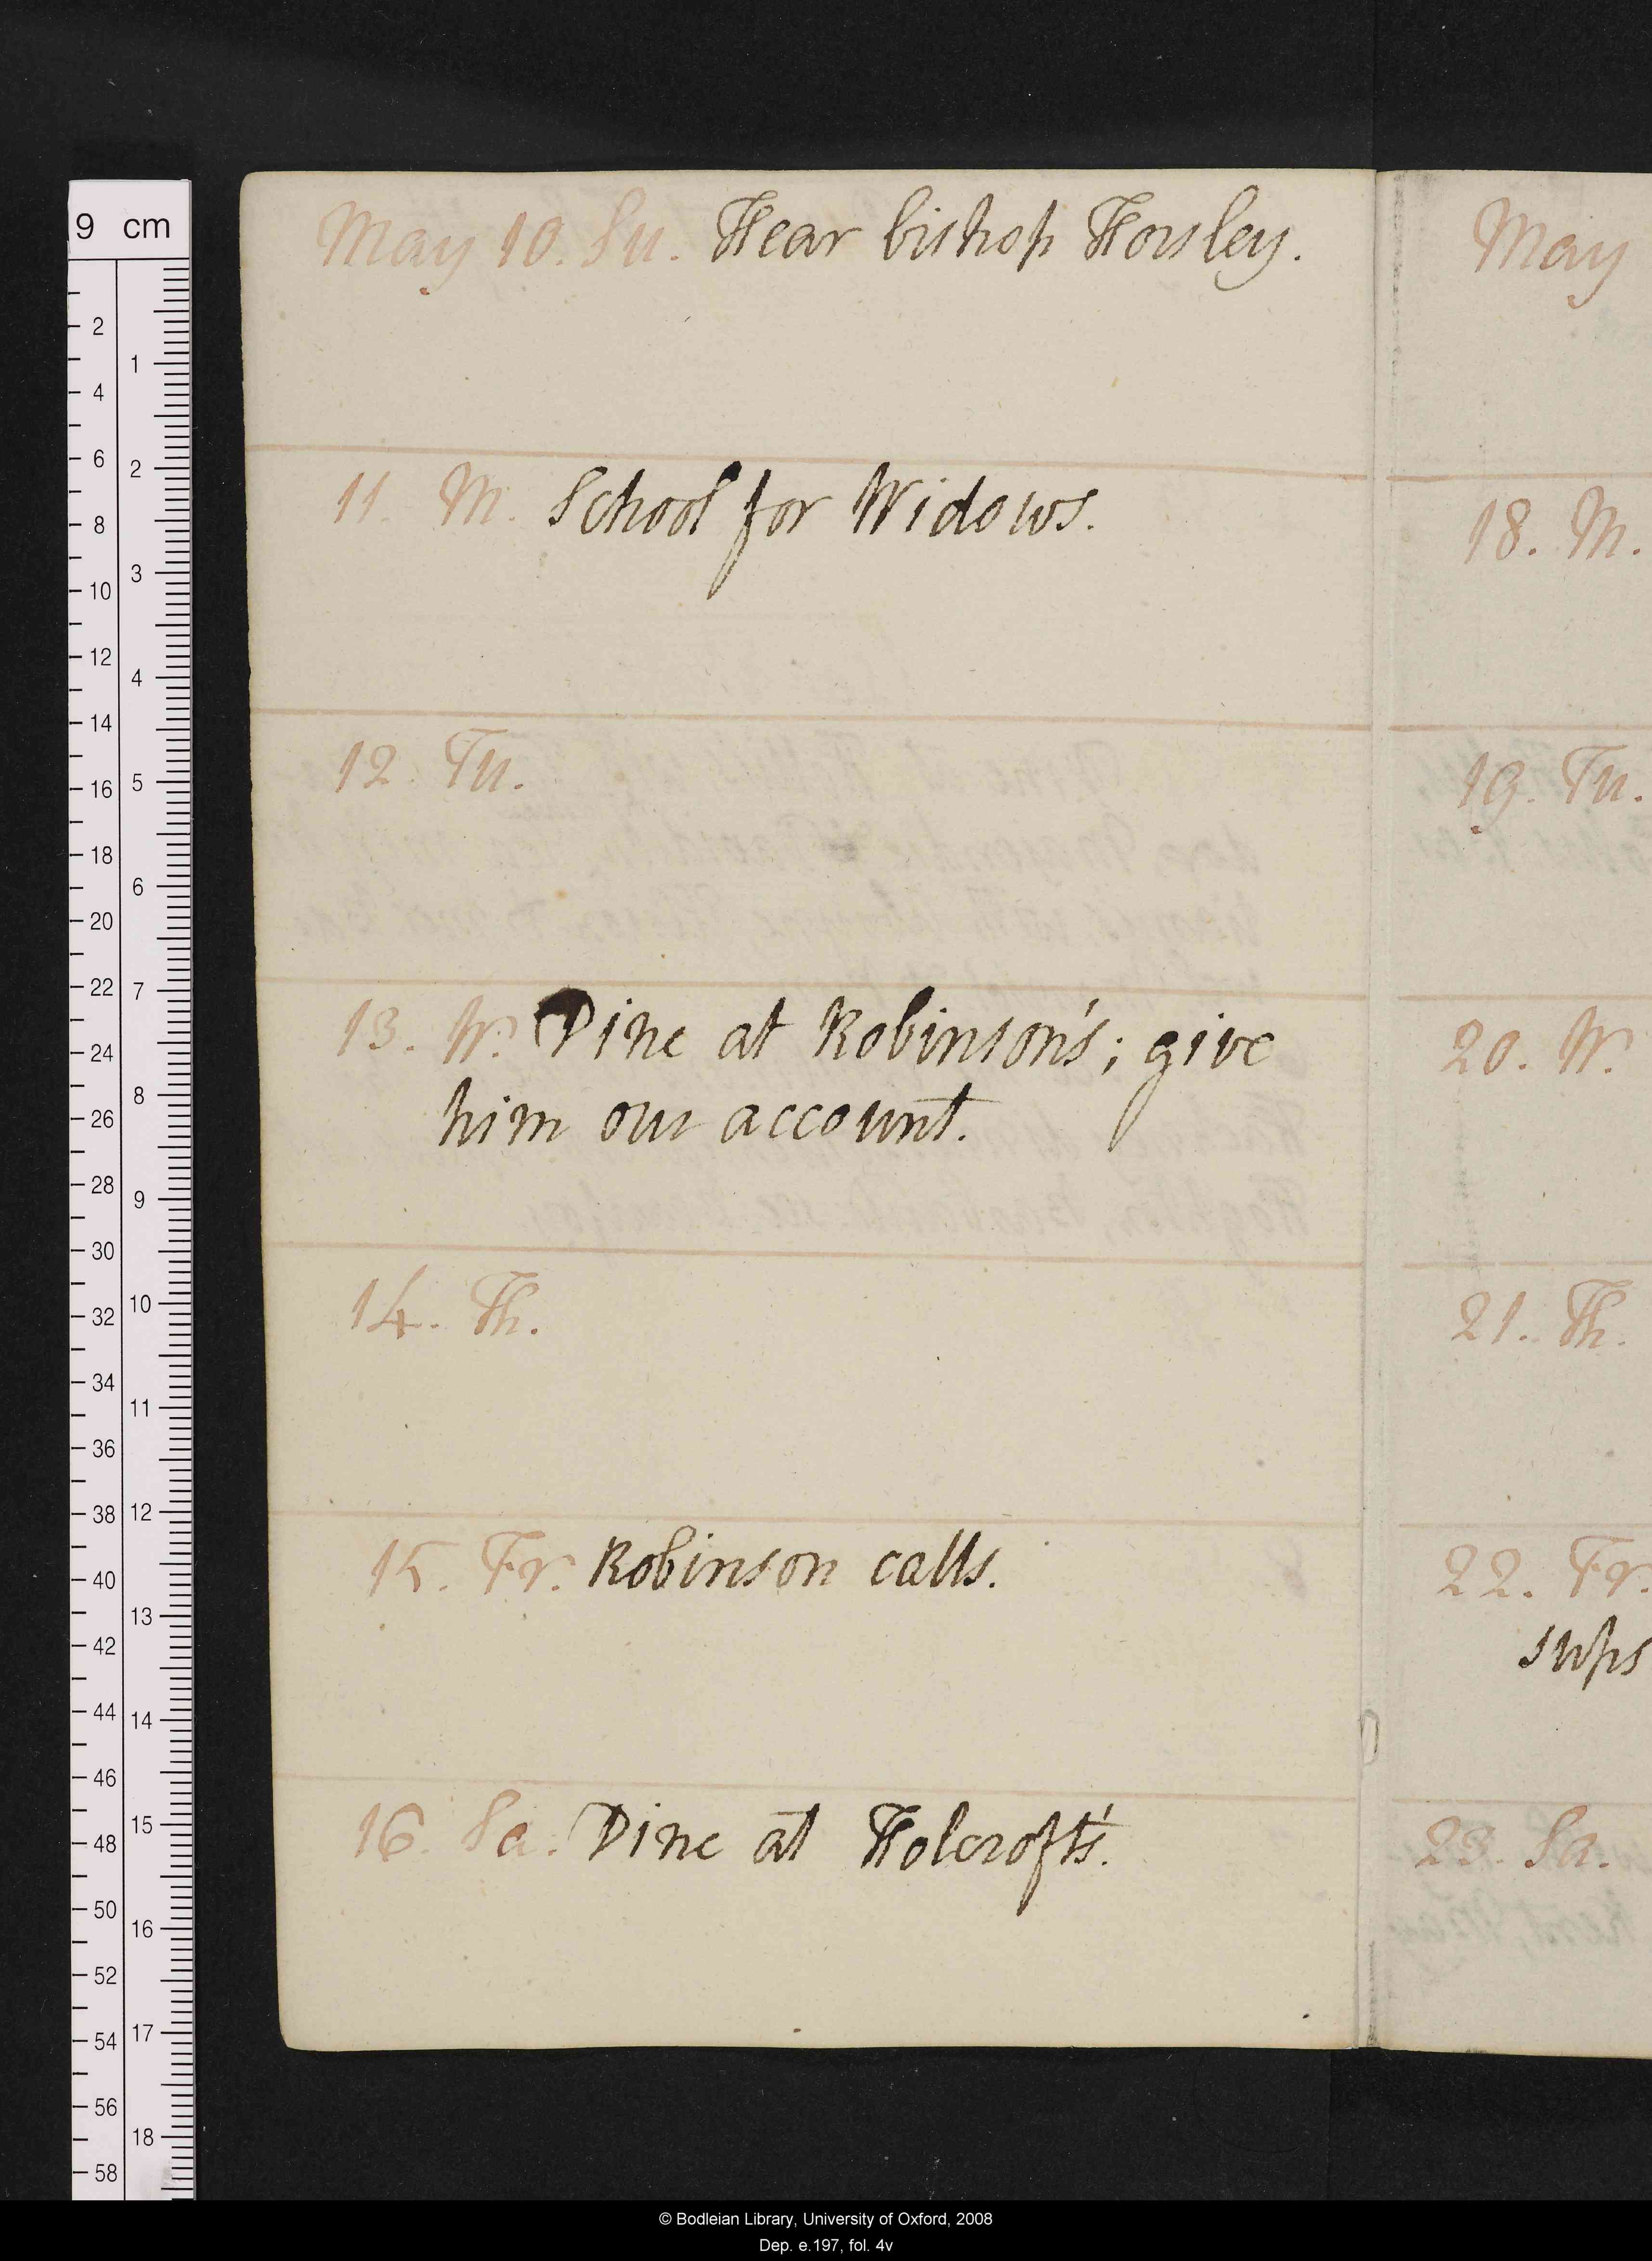 May 10. Su. Hear bishop Horsley.
11. M. School for Widows.
12. Tu.
13. W. Dine at Robinson's; give
him our account.
14. Th.
15. Fr. Robinson calls.
16. Sa. Dine at Holcroft's.
May
18. M.
19. Tu.
20. W.
21. Th.
22. Fr.
sups
23. Sa.
9 cm
2
4
6
8
10
12
14
16
18
20
22
24
26
28
30
32
34
36
38
40
42
44
46
48
50
52
54
56
58
1
2
3
4
5
6
7
8
9
10
11
12
13
14
15
16
17
18
© Bodleian Library, University of Oxford, 2008
Dep. e.197, fol. 4v